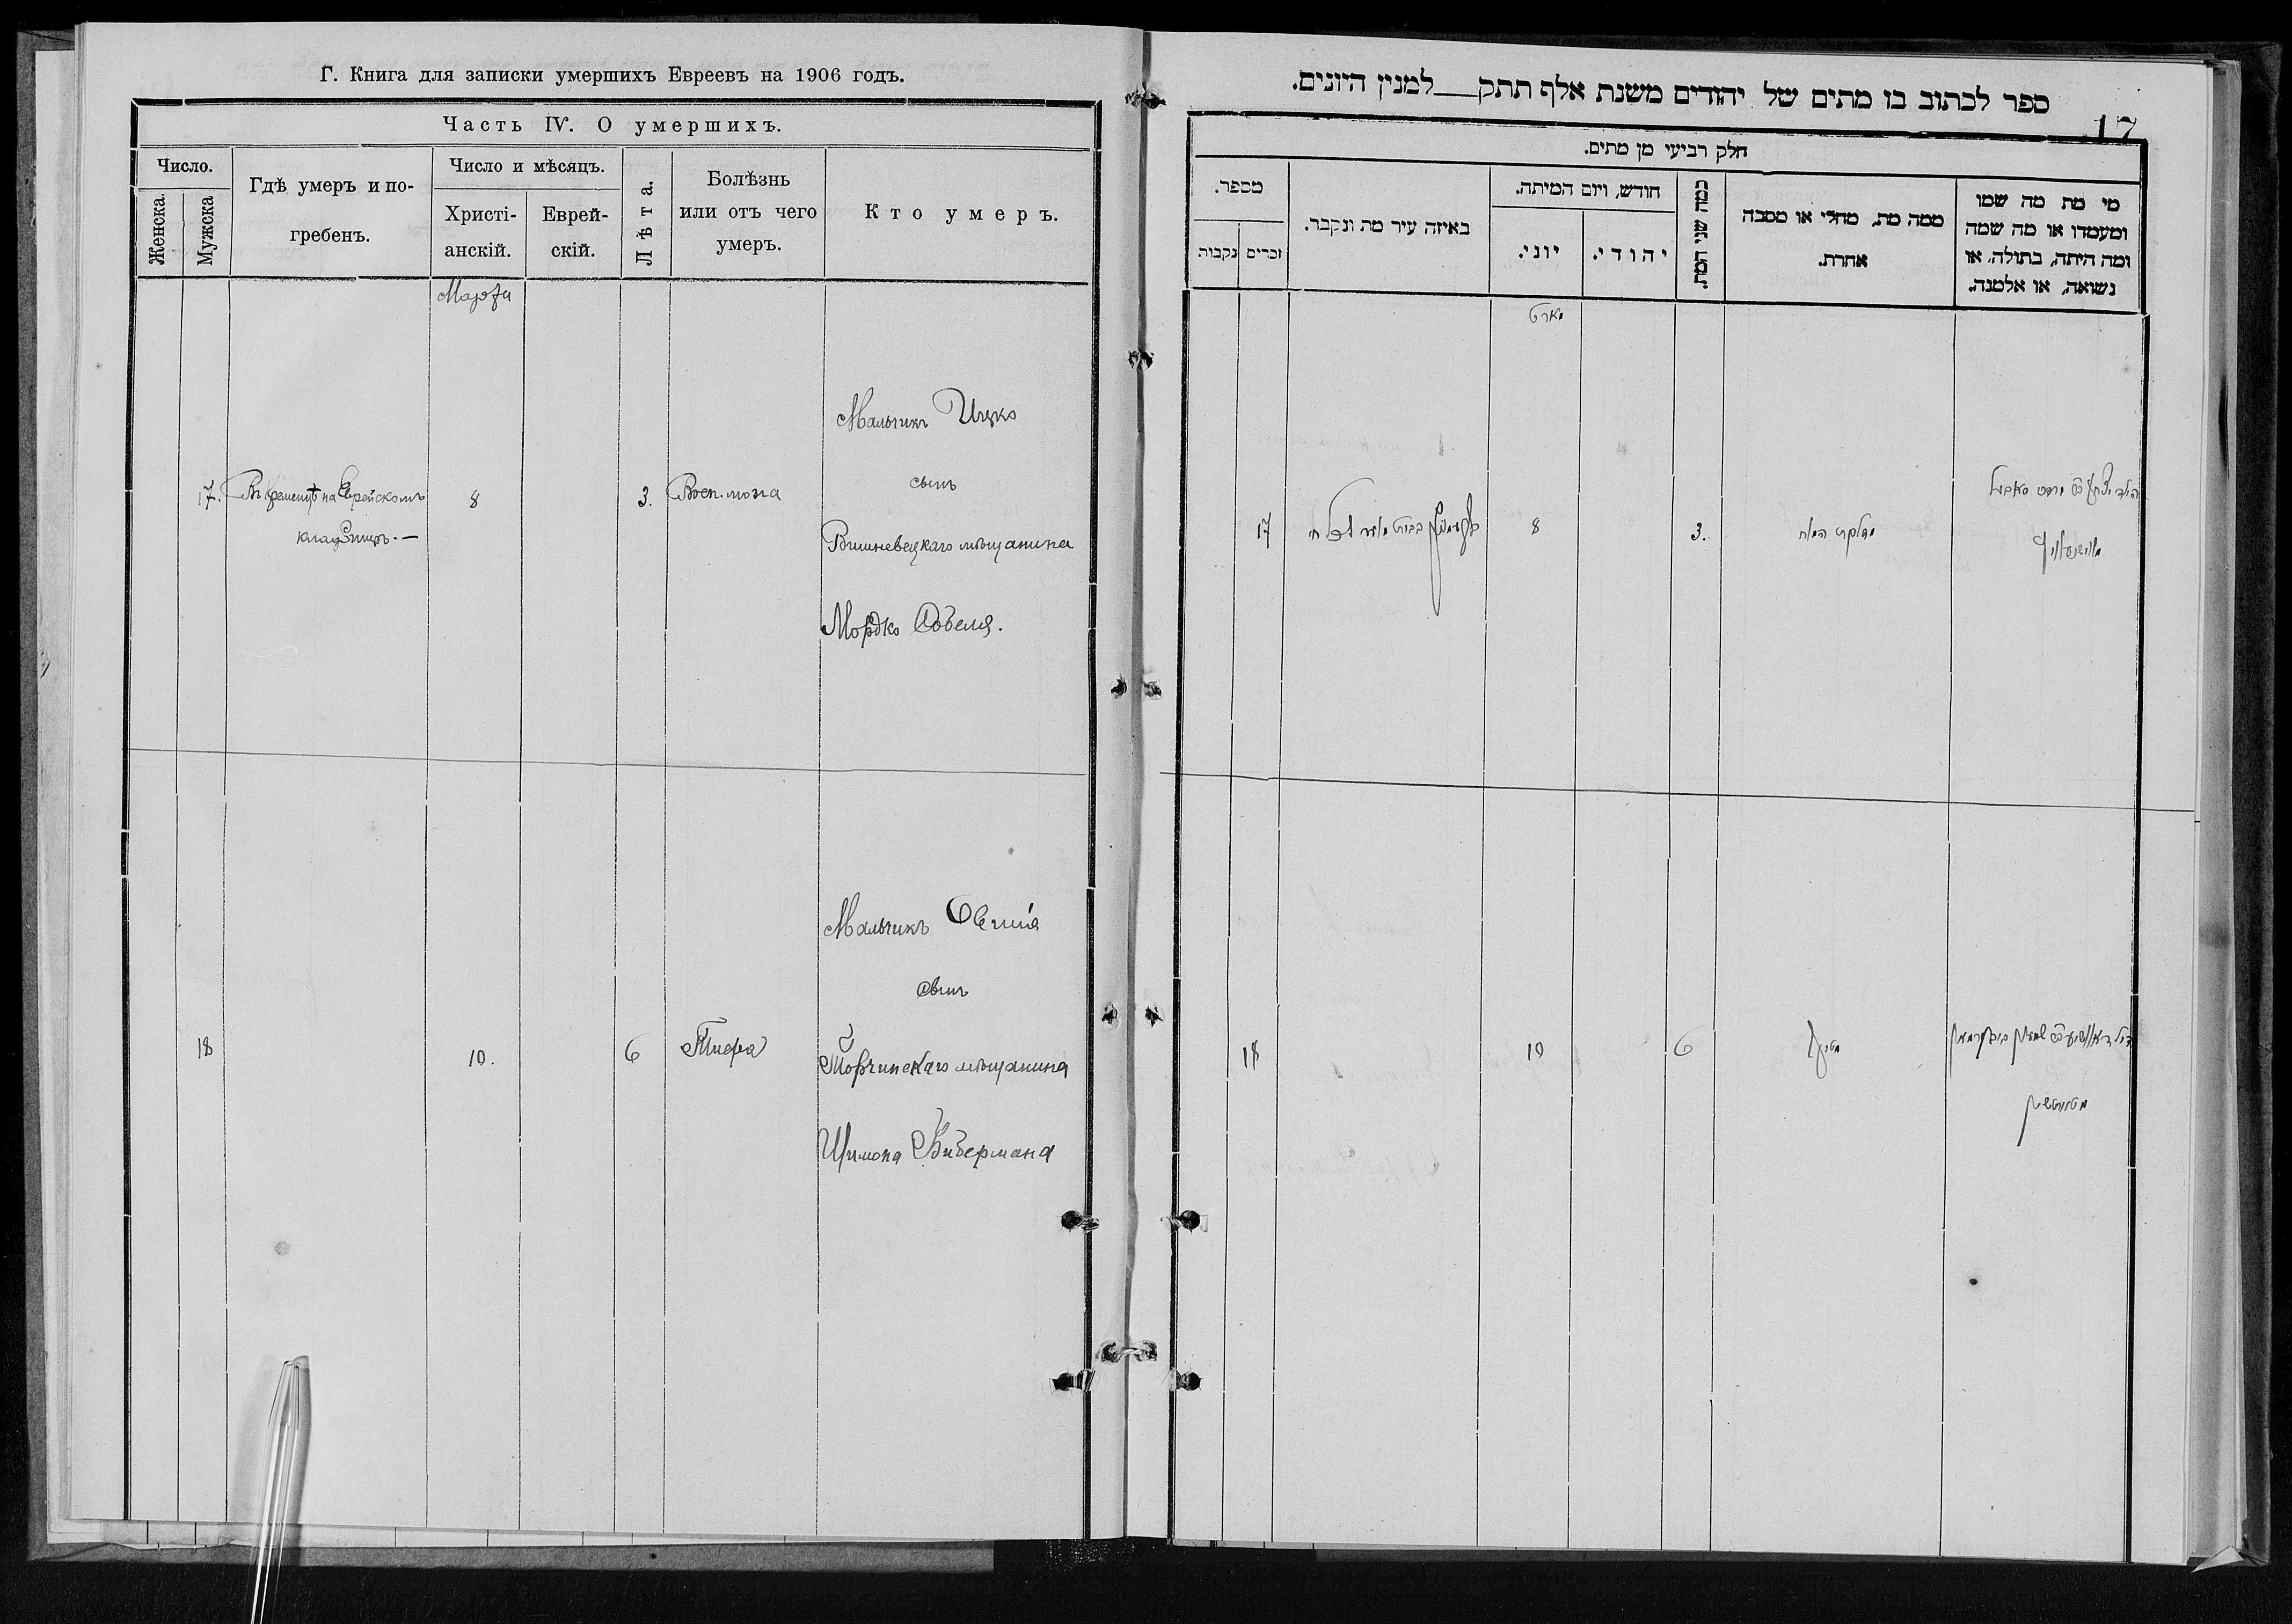 Г. Книга для записки умершихъ Евреевъ на 1906 годъ.
Часть IV. О умершихъ.
Число.
Женска.
Мужска
Гдѣ умеръ и по-
гребенъ.
Число и мѣсяцъ.
Христі-
анскій.
Еврей-
скій.
Лѣта.
Болѣзнь
или отъ чего
умеръ.
Кто умеръ.
Марта
17.
Въ Кременцѣ на Еврейскомъ
кладбищѣ.—
8
3.
Восп. мозга
Мальчикъ Ицко
сынъ
Вишневецкаго мѣщанина
Мордко
18
10.
6
Тифа
Мальчикъ
сынъ
Торчинскаго мѣщанина
Шимона Бибермана
ספר לכתוב בו מתים של יהודים משנת אלף תתק__למנין היונים.
17
חלק רביעי מן מתים.
מספר.
נקבות
זכרים
באיזה עיר מת ונקבר.
חודש, ויום המיתה.
יוני.
יהודי.
כמה שני המת.
ממה מת, מחלי או מסבה
אחרת.
מי מת מה שמו
ומעמדו או מה שמה
ומה היתה, בתולה, או
נשואה, או אלמנה.
מארט
17
8
3.
18
10
6